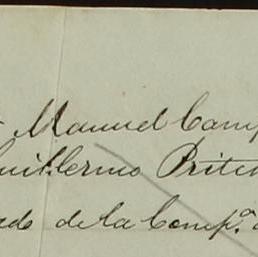 Manuel Camp
Guillermo Pritch
ado de la Comp.ª d